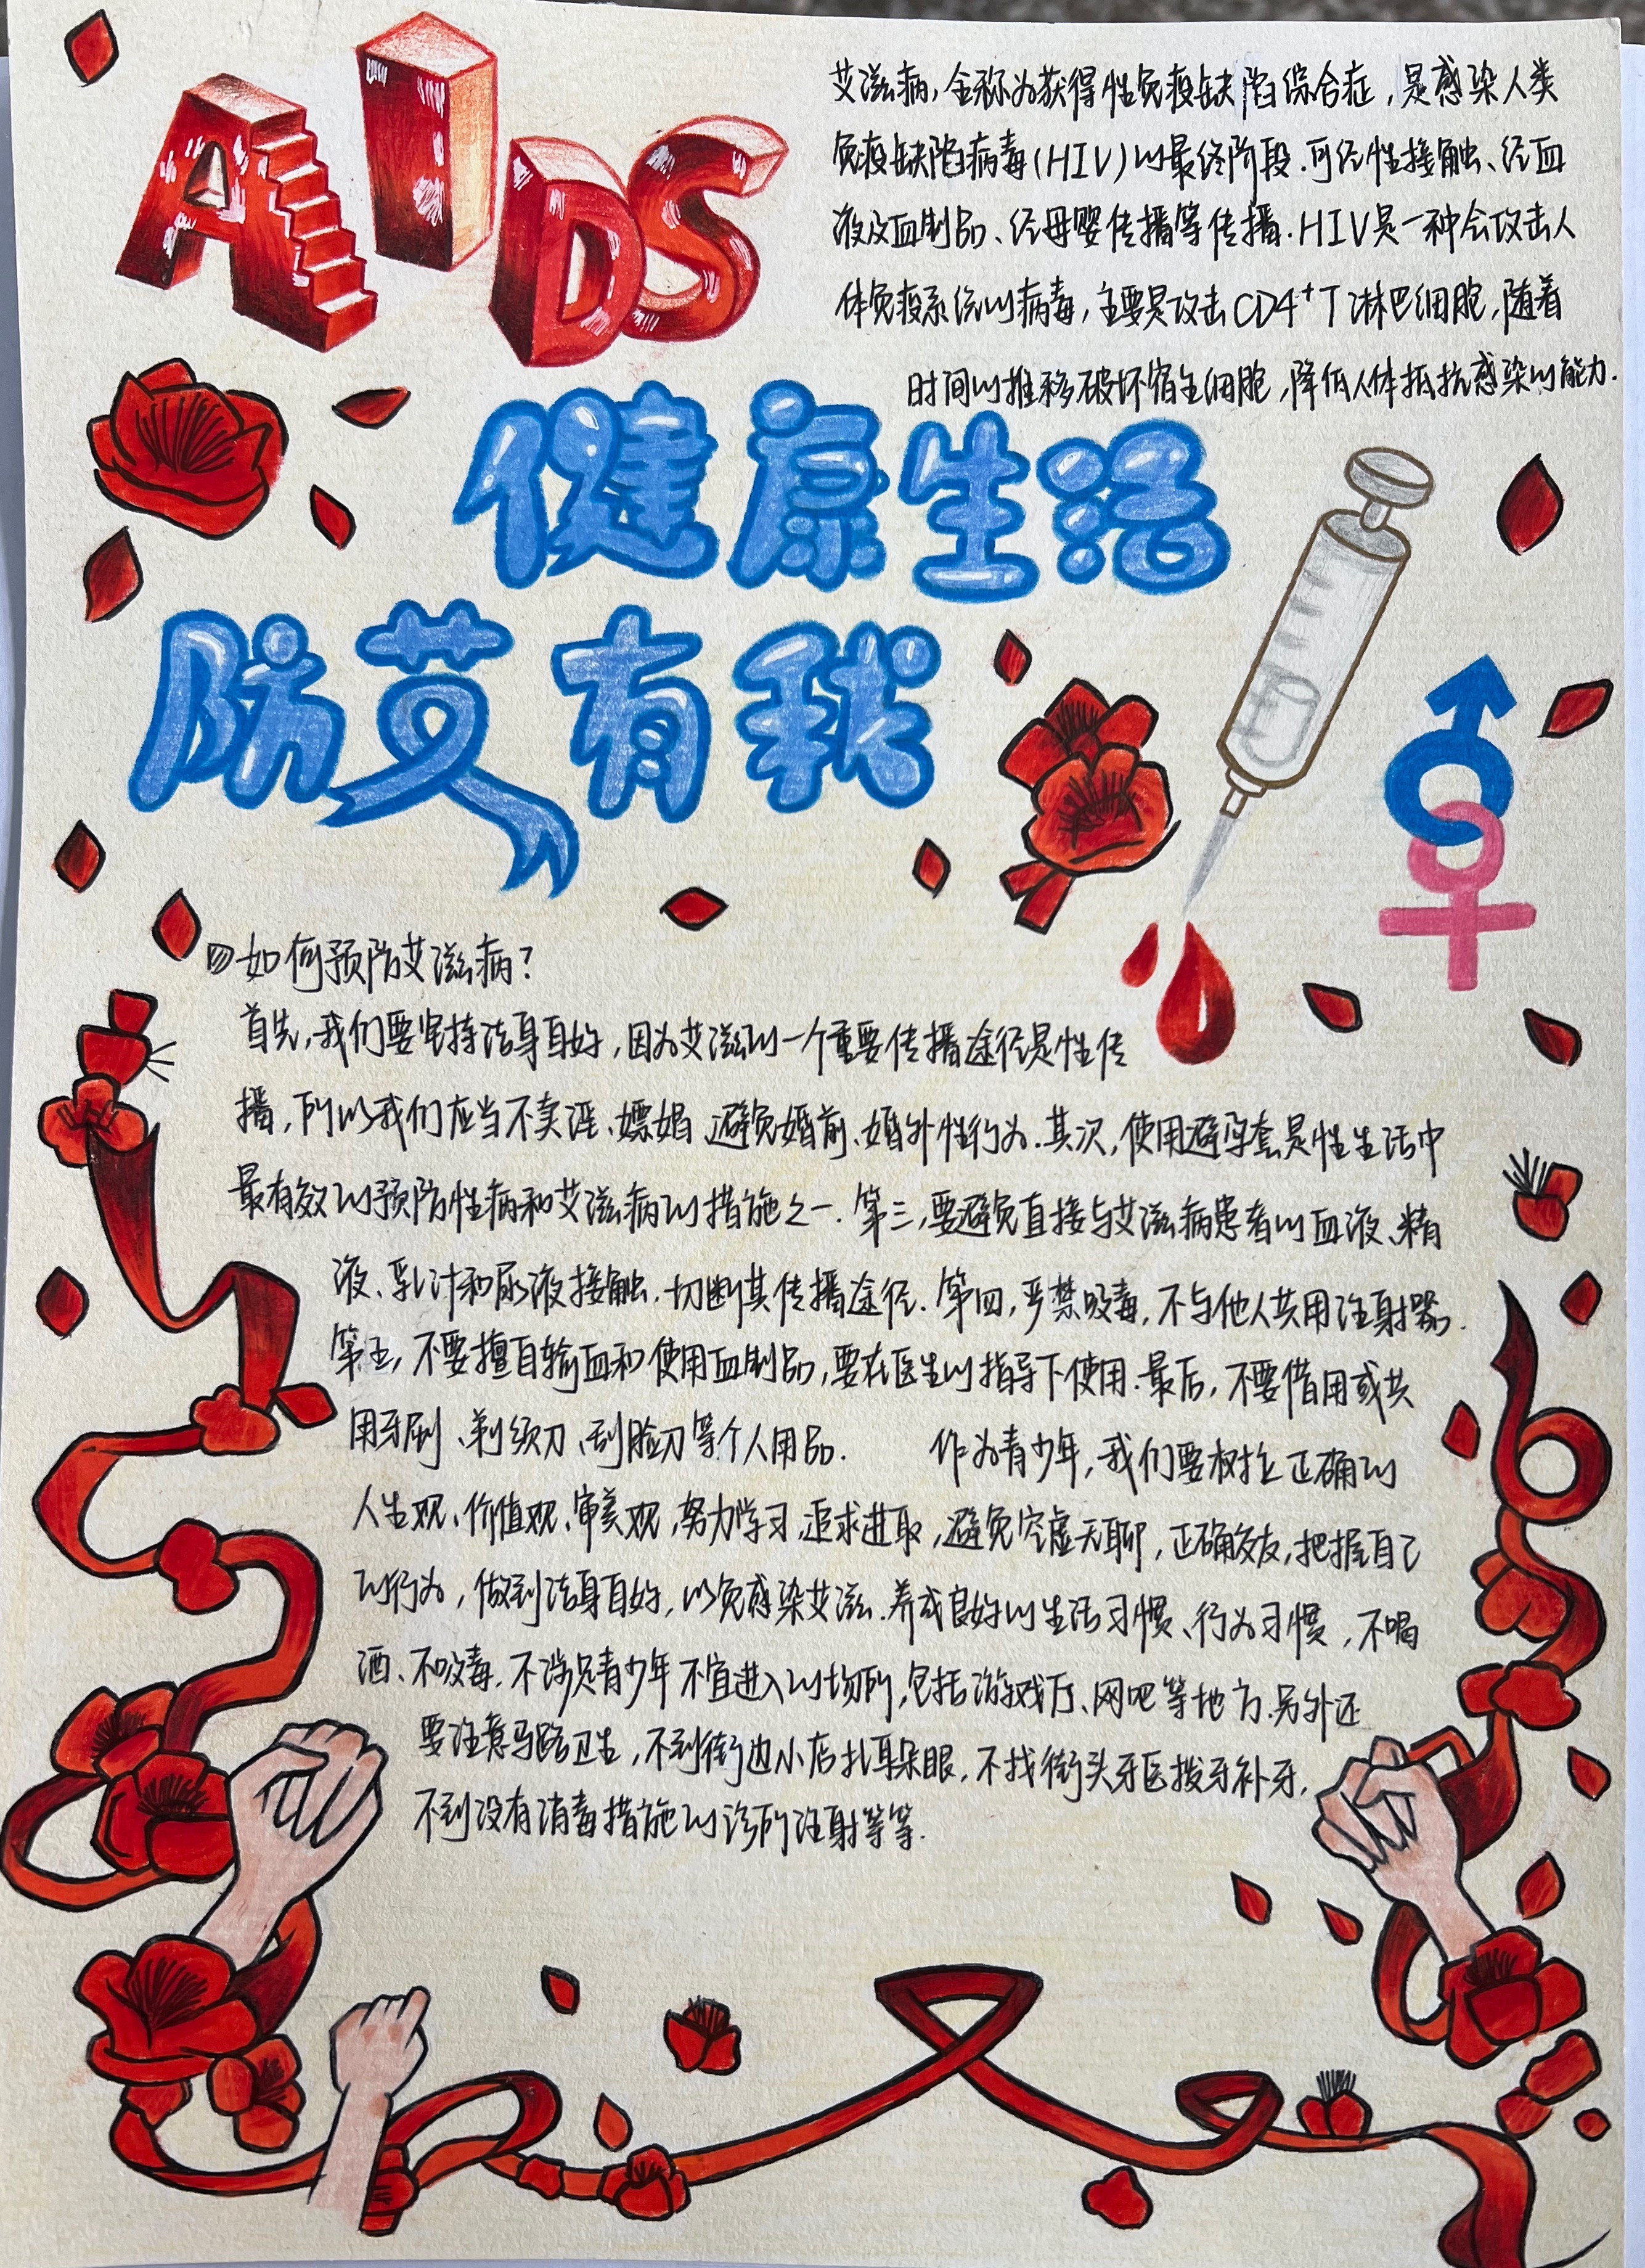 AIDS
艾滋病,全称为获得性免疫缺陷综合症,是感染人类
免疫缺陷病毒(HIV)的最终阶段.可经性接触、经血
液及血制品、经母婴传播等传播.HIV是一种会攻击人
体免疫系统的病毒,主要是攻击CD4⁺T淋巴细胞,随着
时间的推移破坏宿主细胞,降低人体抵抗感染的能力.
健康生活
防艾有我
如何预防艾滋病?
首先,我们要坚持洁身自好,因为艾滋的一个重要传播途径是性传
播,所以我们应当不卖淫、嫖娼 避免婚前、婚外性行为.其次,使用避孕套是性生活中
最有效的预防性病和艾滋病的措施之一.第三,要避免直接与艾滋病患者的血液、精
液、乳汁和尿液接触,切断其传播途径.第四,严禁吸毒,不与他人共用注射器.
第五,不要擅自输血和使用血制品,要在医生的指导下使用.最后,不要借用或共
用牙刷、剃须刀、刮脸刀等个人用品. 作为青少年,我们要树立正确的
人生观、价值观、审美观,努力学习,追求进取,避免空虚无聊,正确交友,把握自己
的行为,做到洁身自好,以免感染艾滋.养成良好的生活习惯、行为习惯,不喝
酒、不吸毒,不涉足青少年不宜进入的场所,包括游戏厅、网吧等地方.另外还
要注意马路卫生,不到街边小店扎耳朵眼,不找街头牙医拔牙补牙,
不到没有消毒措施的诊所注射等等.